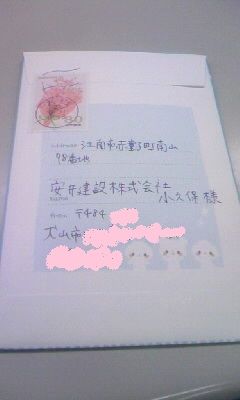 80
address 江南市赤童子町南山
98番地
安井建設株式会社
name 小久保様
from 〒484
犬山市